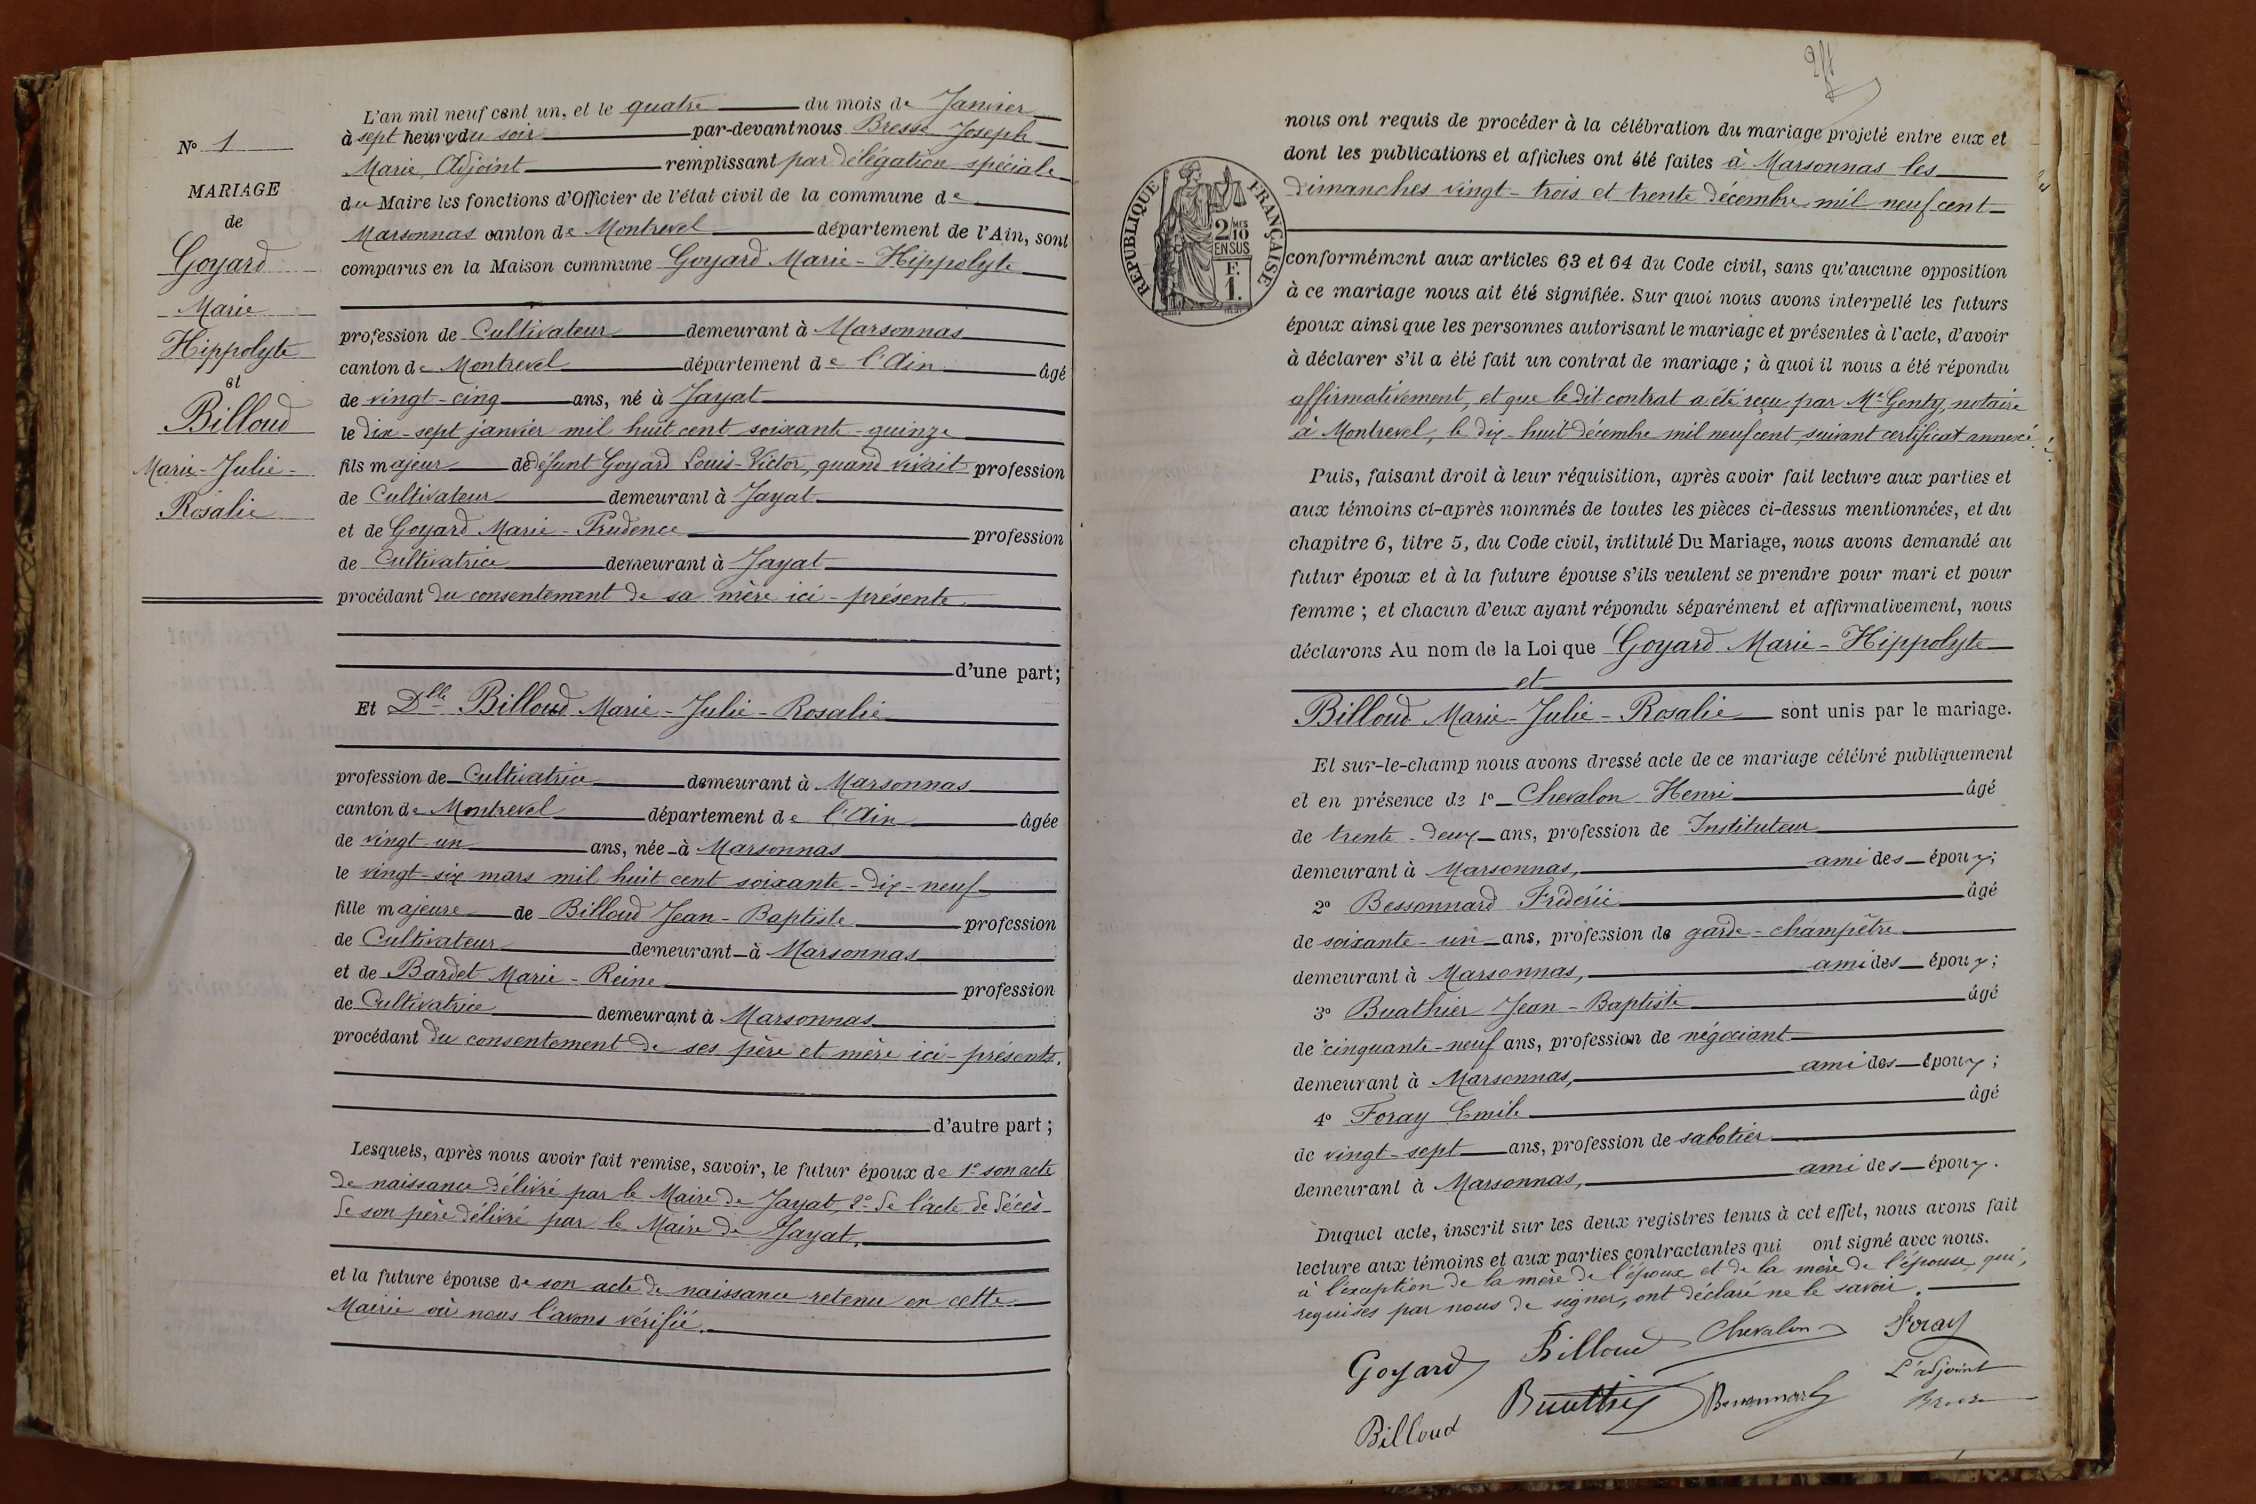 N° 1
MARIAGE
de
Goyard
Marie
Hippolyte
et
Billoud
Marie-Julie-
Rosalie
L'an mil neuf cent un, et le quatre du mois de Janvier
à sept heures du soir par-devant nous Bresse Joseph
Marie, Adjoint remplissant par délégation spéciale
du Maire les fonctions d'Officier de l'état civil de la commune de
Marsonnas canton de Montrevel département de l'Ain, sont
comparus en la Maison commune Goyard Marie-Hippolyte
profession de Cultivateur demeurant à Marsonnas
canton de Montrevel département de l'Ain âgé
de vingt-cinq ans, né à Jayat
le dix-sept janvier mil huit cent soixante-quinze
fils majeur de défunt Goyard Louis-Victor, quand vivait profession
de Cultivateur demeurant à Jayat
et de Goyard Marie-Prudence profession
de Cultivatrice demeurant à Jayat
procédant du consentement de sa mère ici-présente.
d'une part;
Et Dlle Billoud Marie-Julie-Rosalie
profession de Cultivatrice demeurant à Marsonnas
canton de Montrevel département de l'Ain âgée
de vingt-un ans, née à Marsonnas
le vingt-six mars mil huit cent soixante-dix-neuf
fille majeure de Billoud Jean-Baptiste profession
de Cultivateur demeurant à Marsonnas
et de Bardet Marie-Reine profession
de Cultivatrice demeurant à Marsonnas
procédant du consentement de ses père et mère ici-présents.
d'autre part;
Lesquels, après nous avoir fait remise, savoir, le futur époux de 1° son acte
de naissance délivré par le Maire de Jayat, 2° de l'acte de décès
de son père délivré par le Maire de Jayat.
et la future épouse de son acte de naissance retenu en cette
Mairie où nous l'avons vérifié.
RÉPUBLIQUE FRANÇAISE
2/10 MES
EN SUS
F.
1.
nous ont requis de procéder à la célébration du mariage projeté entre eux et
dont les publications et affiches ont été faites à Marsonnas les
dimanches vingt-trois et trente décembre mil neuf cent
conformément aux articles 63 et 64 du Code civil, sans qu'aucune opposition
à ce mariage nous ait été signifiée. Sur quoi nous avons interpellé les futurs
époux ainsi que les personnes autorisant le mariage et présentes à l'acte, d'avoir
à déclarer s'il a été fait un contrat de mariage; à quoi il nous a été répondu
affirmativement, et que le dit contrat a été reçu par Me Genty, notaire
à Montrevel, le dix-huit décembre mil neuf cent suivant certificat annexé.
Puis, faisant droit à leur réquisition, après avoir fait lecture aux parties et
aux témoins ci-après nommés de toutes les pièces ci-dessus mentionnées, et du
chapitre 6, titre 5, du Code civil, intitulé Du Mariage, nous avons demandé au
futur époux et à la future épouse s'ils veulent se prendre pour mari et pour
femme; et chacun d'eux ayant répondu séparément et affirmativement, nous
déclarons Au nom de la Loi que Goyard Marie-Hippolyte
et
Billoud Marie-Julie-Rosalie sont unis par le mariage.
Et sur-le-champ nous avons dressé acte de ce mariage célébré publiquement
et en présence de 1° Chevalon Henri âgé
de trente-deux ans, profession de Instituteur
demeurant à Marsonnas, ami des époux;
2° Bessonnard Frédéric âgé
de soixante-un ans, profession de garde-champêtre
demeurant à Marsonnas, ami des époux;
3° Buathier Jean-Baptiste âgé
de cinquante-neuf ans, profession de négociant
demeurant à Marsonnas, ami des époux;
4° Foray Emile âgé
de vingt-sept ans, profession de sabotier
demeurant à Marsonnas, ami des époux.
Duquel acte, inscrit sur les deux registres tenus à cet effet, nous avons fait
lecture aux témoins et aux parties contractantes qui ont signé avec nous.
à l'exception de la mère de l'époux et de la mère de l'épouse, qui,
requises par nous de signer, ont déclaré ne le savoir.
Goyard Billoud Chevalon Foray
Billoud Buathier Bessonnard L'adjoint
Bresse